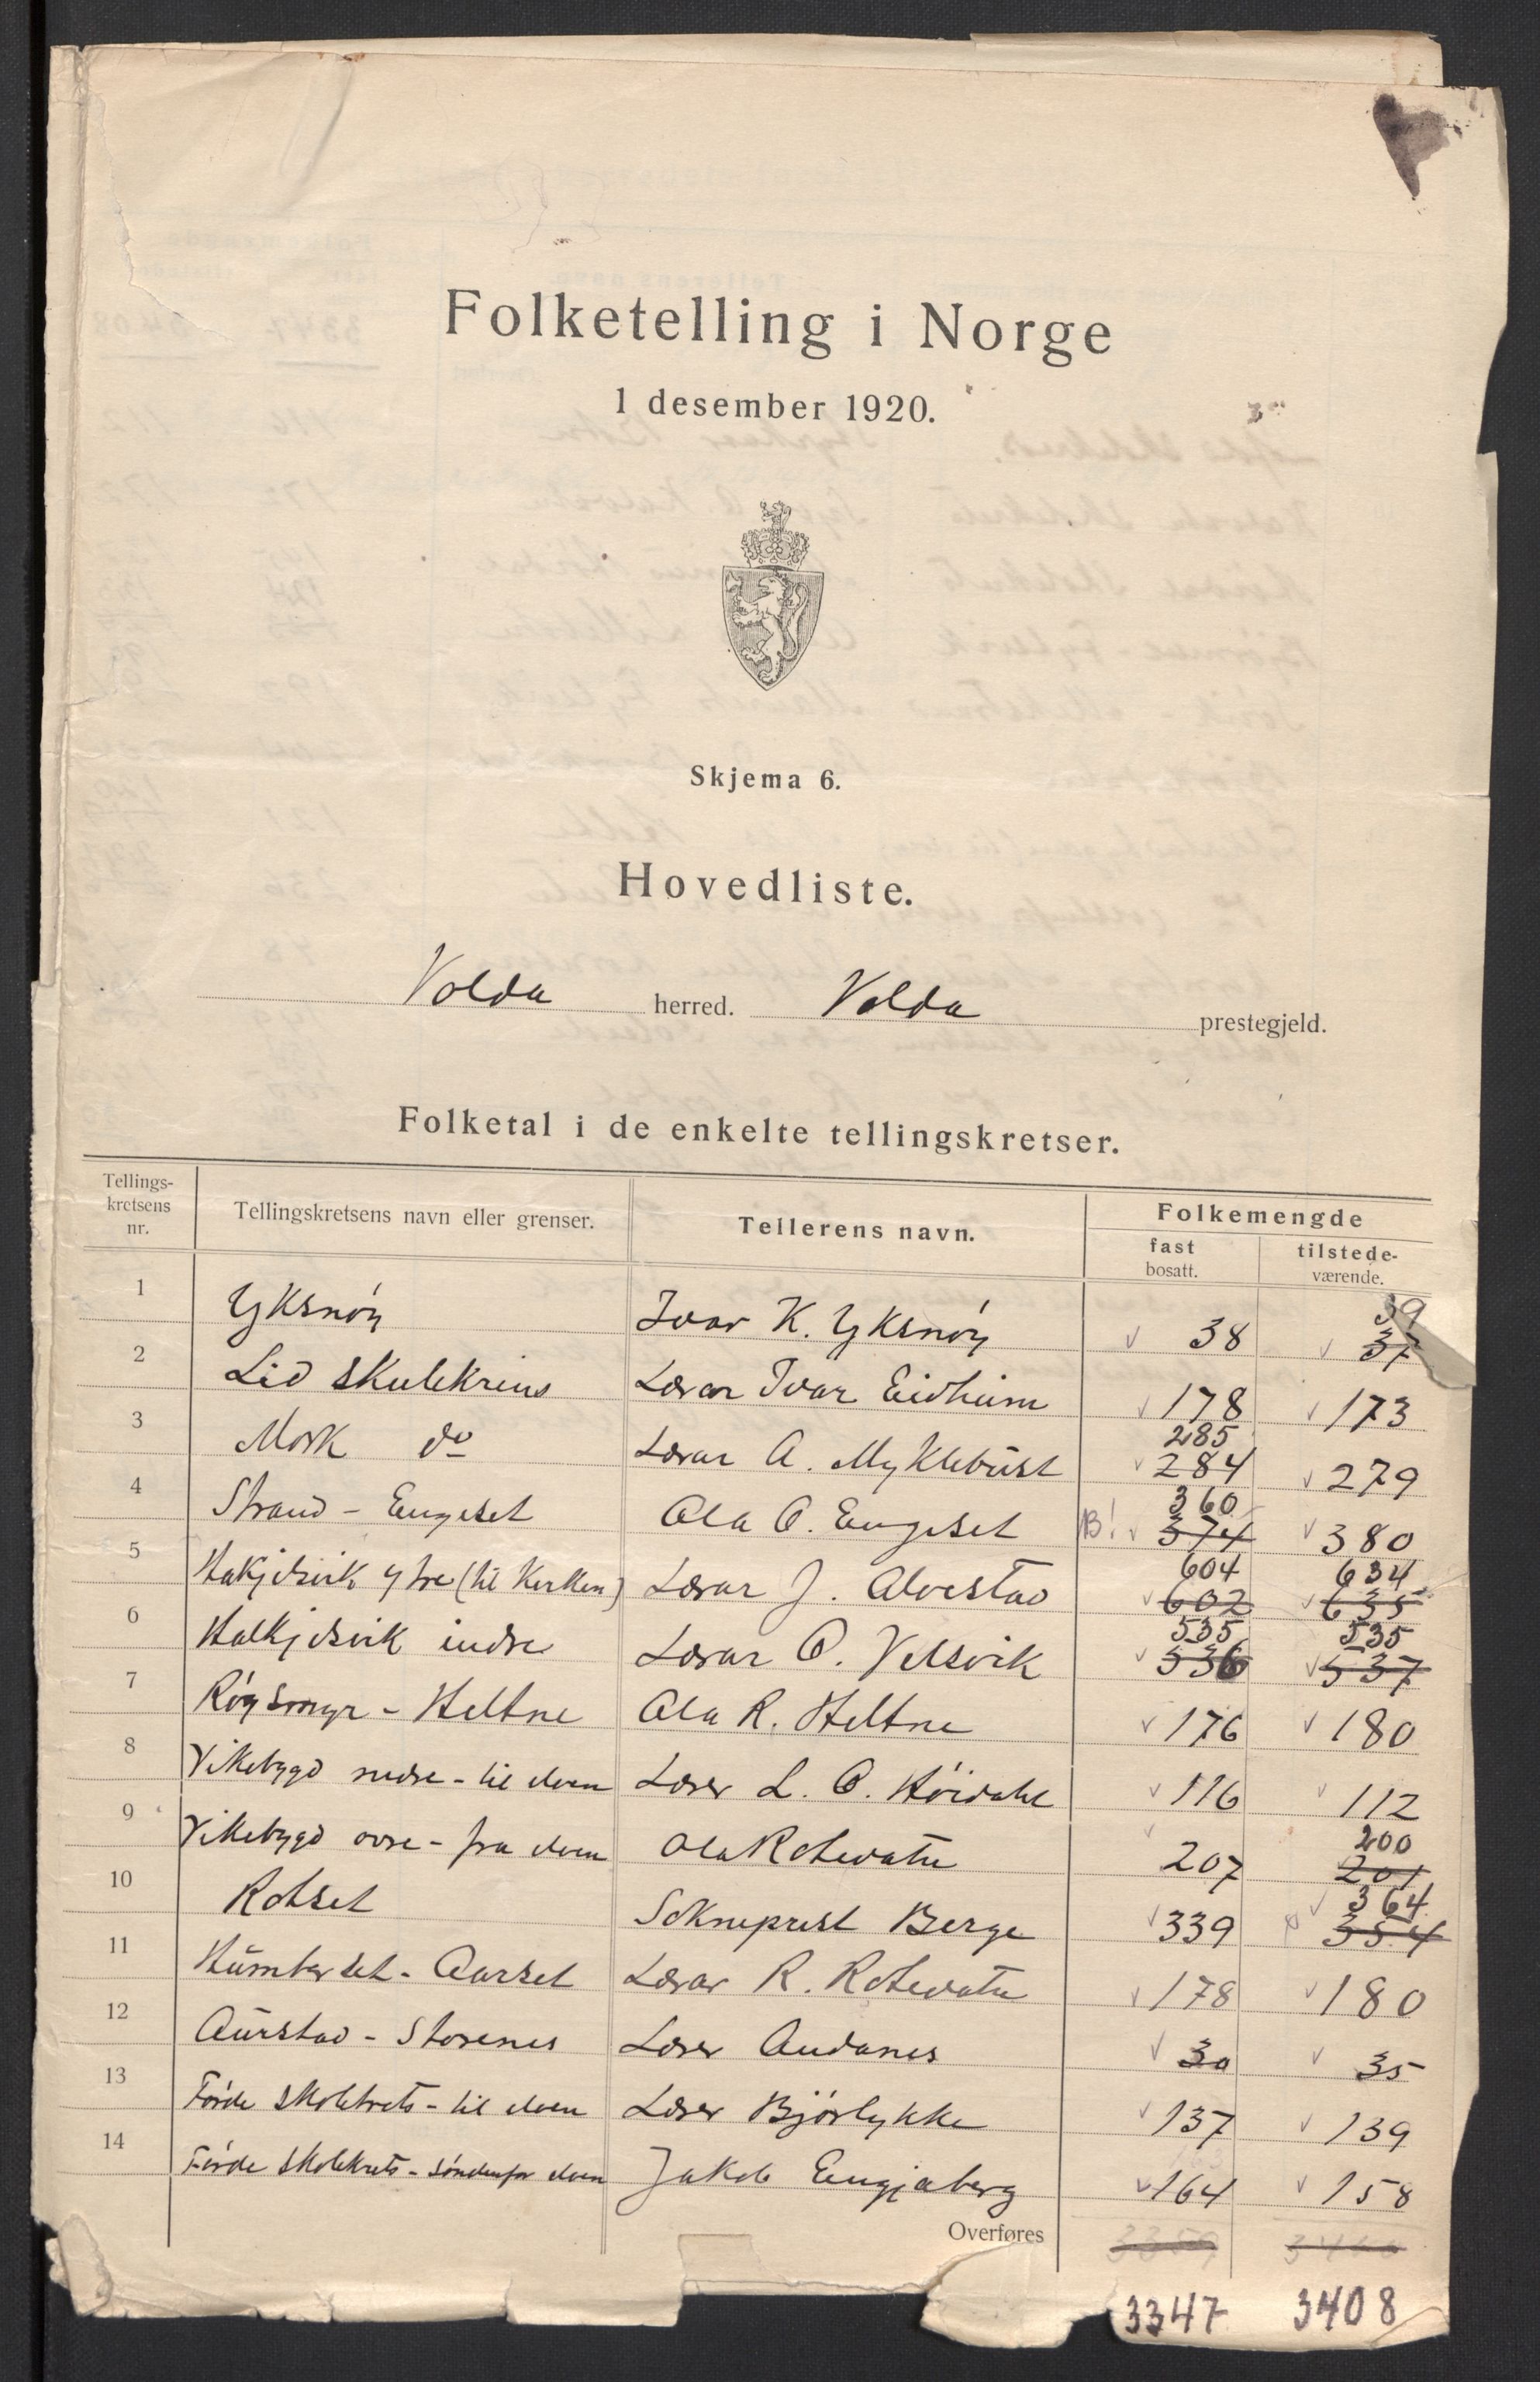 Folketelling i Norge
1 desember 1920.
Skjema 6.
Hovedliste.
Volda herred. Volda prestegjeld.
Folketal i de enkelte tellingskretser.
Tellings-kretsens nr. Tellingskretsens navn eller grenser. Tellerens navn. Folkemengde
fast bosatt. tilstede-værende.
39
1 Yksnöy Ivar K. Yksnöy 38 37
2 Lid skulekrins Lærar Ivar Eidheim 178 173
285
3 Mork do Lærar A. Myklebust 284 279
360
4 Strand - Engeset Ola O. Engeset B! 374 380
604 634
5 Halkjelsvik ytre (til Kirken) Lærar J. Alvestad 602 635
535 535
6 Halkjelsvik indre Lærar O. Velsvik 536 537
7 Röysmyr - Heltne Ola R. Heltne 176 180
8 Vikebygd nedre - til elven Lærer L. O. Höidahl 116 112
200
9 Vikebygd övre - fra elven Ola Rotevatn 207 201
364
10 Rotset Sokneprest Berge 339 354
11 Humberset - Aarset Lærar R. Rotevatn 178 180
12 Aurstad - Storenes Lærer Audanes 30 35
13 Förde skolekrets - til elven Lærer Bjørlykke 137 139
14 Förde skolekrets - söndenfor elven Jakob Engjaberg 164 158
Overføres
3347 3408